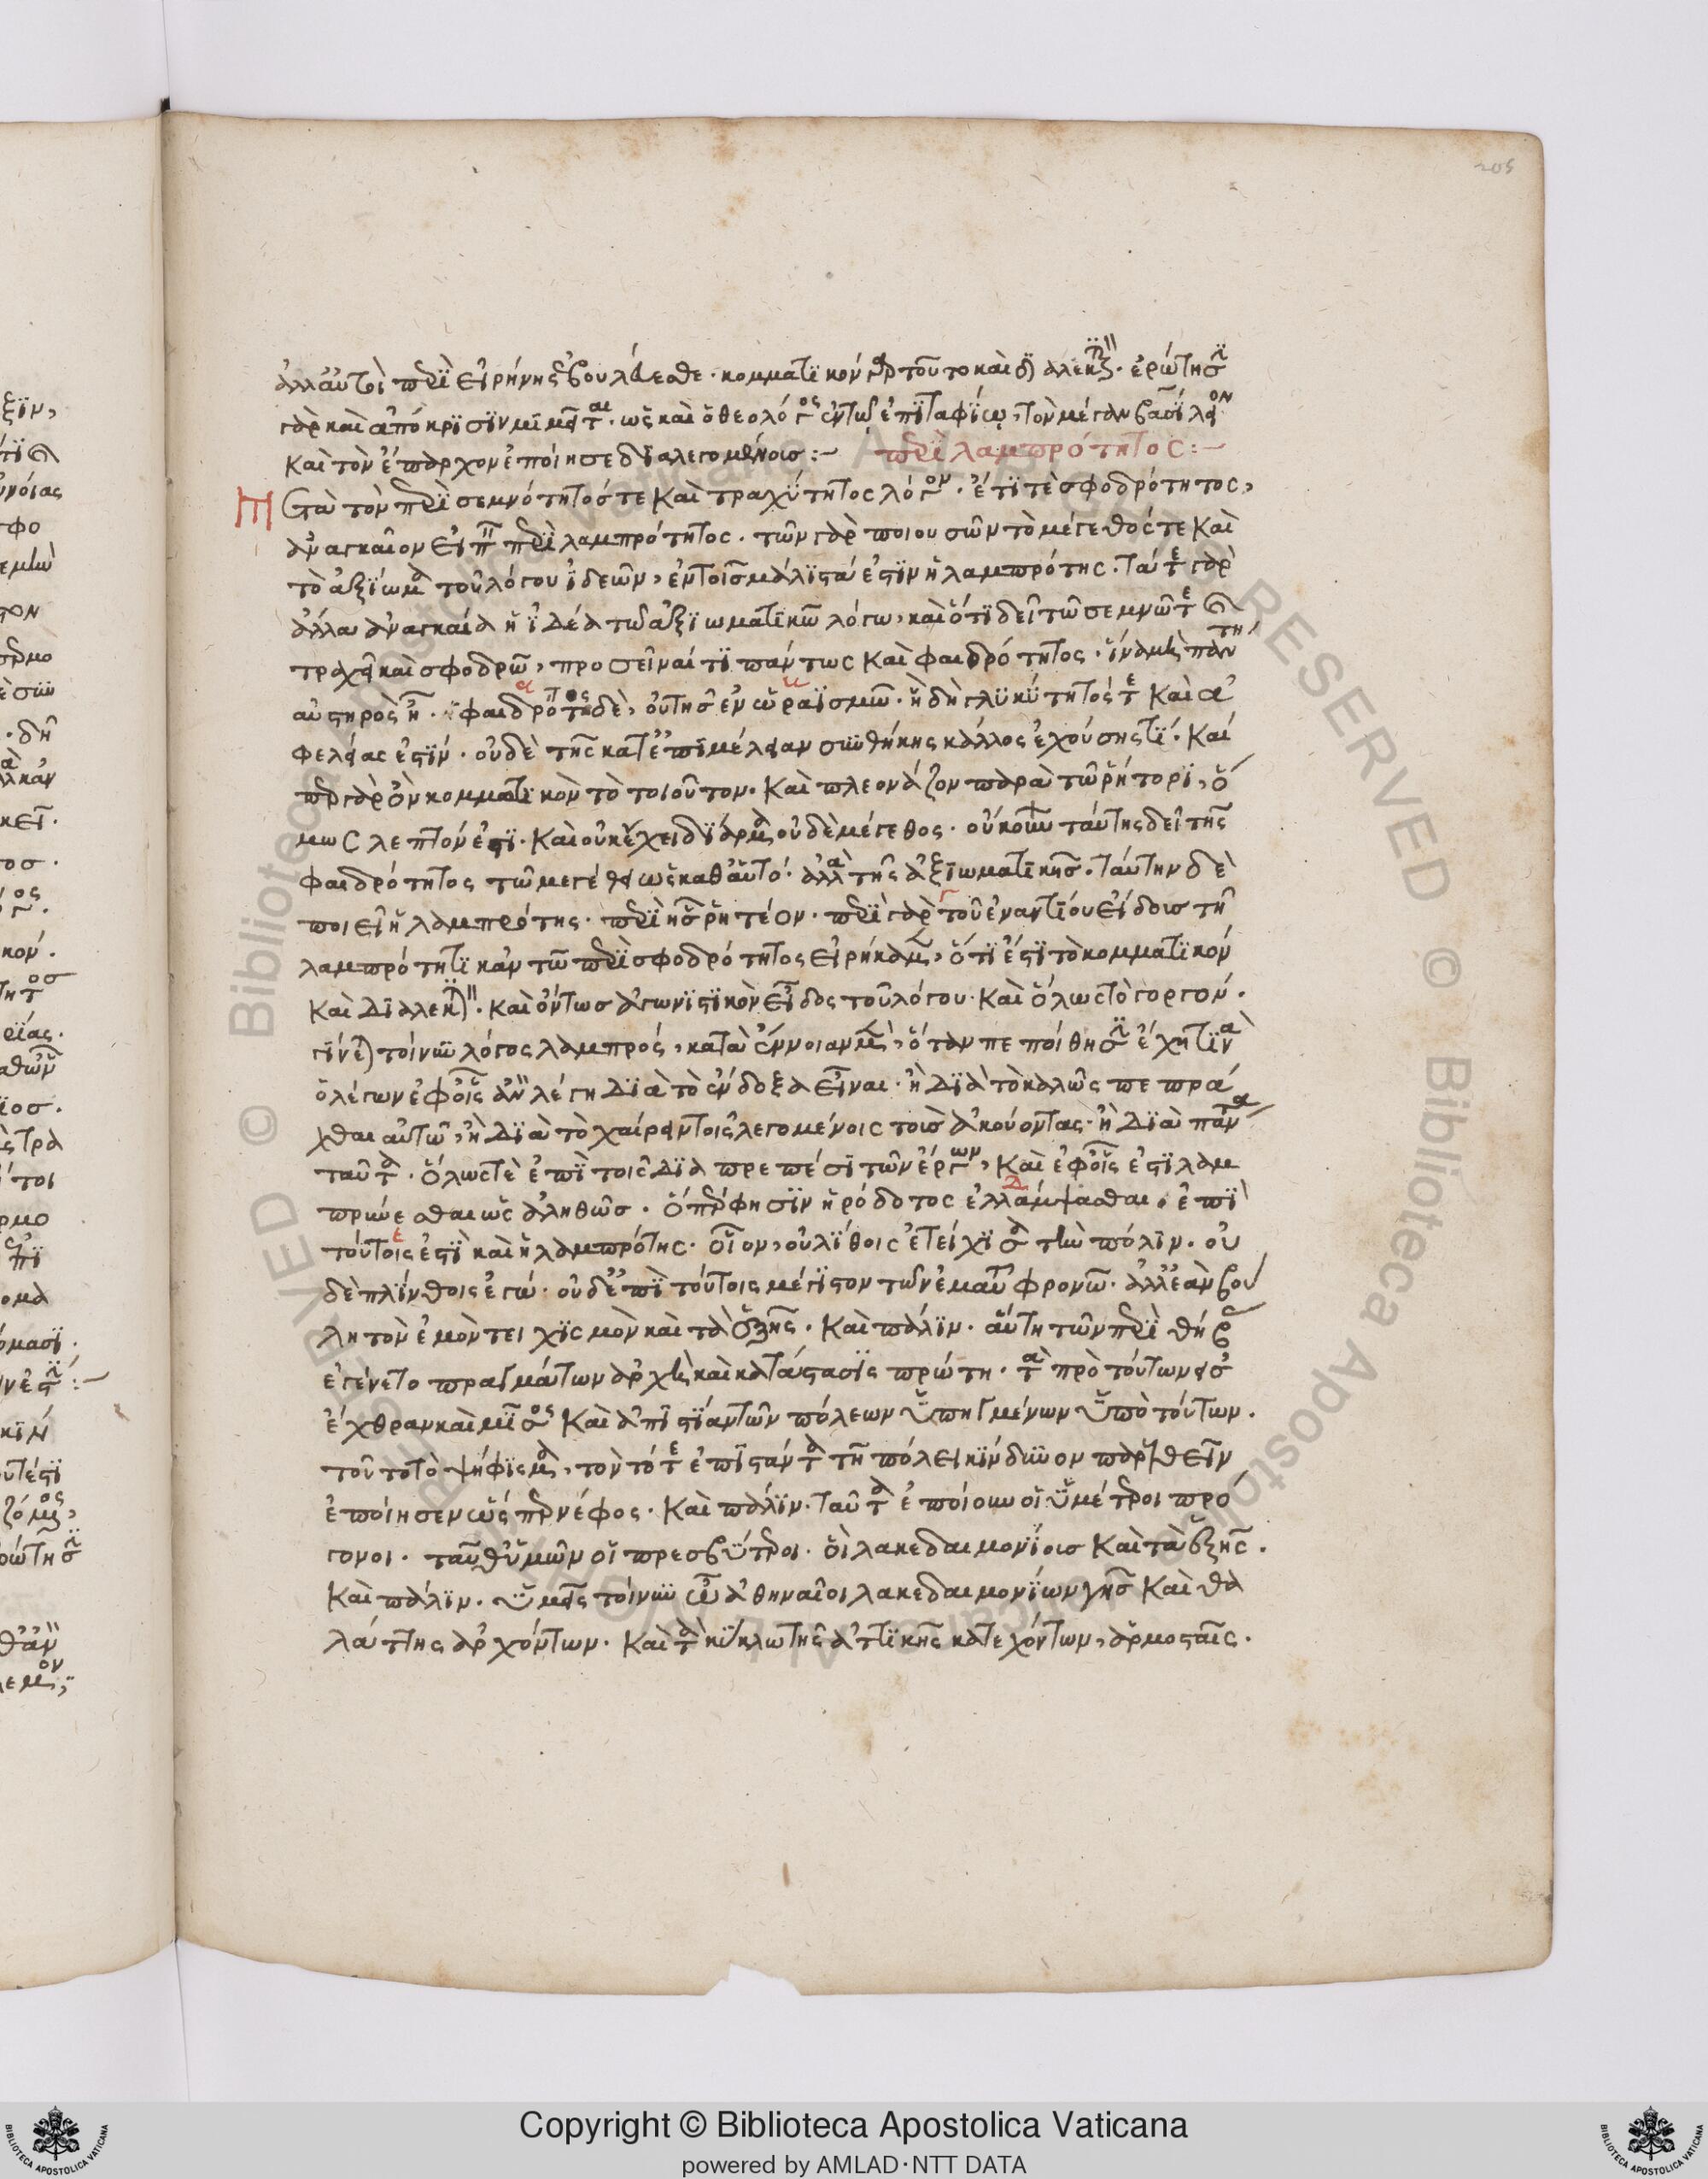 205
ἀλλ' αὐτοὶ περὶ εἰρήνης ἐβουλεύεσθε · κομματικὸν γὰρ τοῦτο καὶ διαλεκτικόν · ἐρώτησιν
γὰρ καὶ ἀπόκρισιν μιμεῖται · ὡς καὶ ὁ θεολόγος ἐν τῷ ἐπιταφίῳ, τὸν μέγαν βασίλειον
καὶ τὸν ἔπαρχον ἐποίησε διαλεγομένοις :– περὶ λαμπρότητος :–
Μετὰ τὸν περὶ σεμνότητός τε καὶ τραχύτητος λόγον · ἔτι τὲ σφοδρότητος,
ἀναγκαῖον εἰπεῖν περὶ λαμπρότητος · τῶν γὰρ ποιουσῶν τὸ μέγεθός τε καὶ
τὸ ἀξίωμα τοῦ λόγου ἰδεῶν, ἐν τοῖς μάλιστά ἐστιν ἡ λαμπρότης · ταύτῃ γὰρ
ἄλλα ἀναγκαία ἡ ἰδέα τῷ ἀξιωματικῷ λόγῳ, καὶ ὅτι δεῖ τῷ σεμνῷ τε καὶ
τραχεῖ καὶ σφοδρῷ, προσεῖναί τι πάντως καὶ φαιδρότητος · ἵνα μὴ πάντῃ
αὐστηρὸς ᾖ · φαιδρότητος δὲ, οὐ τῆς ἐν ὡραϊσμῷ · ἢ δὴ γλυκύτητός τε καὶ ἀ
φελείας ἐστίν · οὐδὲ τῆς κατ' ἐπιμέλειαν συνθήκης κάλλος ἐχούσης τί · καὶ
γὰρ ὂν κομματικὸν τὸ τοιοῦτον · καὶ πλεονάζον παρὰ τῷ ῥήτορι, ὅ
μως λεπτόν ἐστι · καὶ οὐκ ἔχει δίαρμα οὐδὲ μέγεθος · οὔκουν ταύτης δεῖ τῆς
φαιδρότητος τῷ μεγέθει ὡς καθ' αὑτό · ἀλλὰ τῆς ἀξιωματικῆς · ταύτην δὲ
ποιεῖ ἡ λαμπρότης · περὶ ἧς ῥητέον · περὶ γὰρ τοῦ ἐναντίου εἴδους τῇ
λαμπρότητι κἀν τῷ περὶ σφοδρότητος εἰρήκαμεν, ὅτι ἐστὶ τὸ κομματικὸν
καὶ διαλεκτικόν · καὶ ὄντως ἀγωνιστικὸν εἶδος τοῦ λόγου · καὶ ὅλως τὸ γοργόν ·
γίνεται τοίνυν λόγος λαμπρός, κατὰ ἔννοιαν μὲν, ὅταν πεποίθησιν ἔχῃ τινὰ
ὁ λέγων ἐφ' οἷς ἂν λέγῃ διὰ τὸ ἔνδοξα εἶναι · ἢ διὰ τὸ καλῶς πεπρᾶ
χθαι αὐτῷ, ἢ διὰ τὸ χαίρειν τοῖς λεγομένοις τοὺς ἀκούοντας · ἢ διὰ πάντα
ταῦτα · ὅλως τὲ ἐπὶ τοῖς διαπρεπέσι τῶν ἔργων, καὶ ἐφ' οἷς ἐστι λαμ
πρύνεσθαι ὡς ἀληθῶς · ὅπερ φησὶν ἡρόδοτος ἐλλάμψασθαι · ἐπὶ
τούτοις ἐστὶ καὶ ἡ λαμπρότης · οἷον, οὐ λίθοις ἐτείχισα τὴν πόλιν · οὐ
δὲ πλίνθοις ἐγώ · οὐδ' ἐπὶ τούτοις μέγιστον τῶν ἐμαυτοῦ φρονῶ · ἀλλ' ἐὰν βού
λῃ τὸν ἐμὸν τειχισμὸν καὶ τὰ ἑξῆς · καὶ πάλιν · αὕτη τῶν περὶ θήβας
ἐγένετο πραγμάτων ἀρχὴ καὶ κατάστασις πρώτη · τὰ πρὸ τούτων εἰς
ἔχθραν καὶ μῖσος καὶ ἀπιστίαν τῶν πόλεων ὑπηγμένων ὑπὸ τούτων ·
τοῦτο τὸ ψήφισμα, τὸν τότε ἐπιστάντα τῇ πόλει κίνδυνον παρελθεῖν
ἐποίησεν ὥσπερ νέφος · καὶ πάλιν · ταῦτα ἐποίουν οἱ ὑμέτεροι πρό
γονοι · ταῦθ' ὑμῶν οἱ πρεσβύτεροι · οἳ λακεδαιμονίους καὶ τὰ ἑξῆς ·
καὶ πάλιν · ὑμεῖς τοίνυν ὦ ἀθηναῖοι λακεδαιμονίων γῆς καὶ θα
λάττης ἀρχόντων · καὶ τὰ κύκλῳ τῆς ἀττικῆς κατεχόντων, ἁρμοσταῖς ·
Copyright © Biblioteca Apostolica Vaticana
powered by AMLAD·NTT DATA